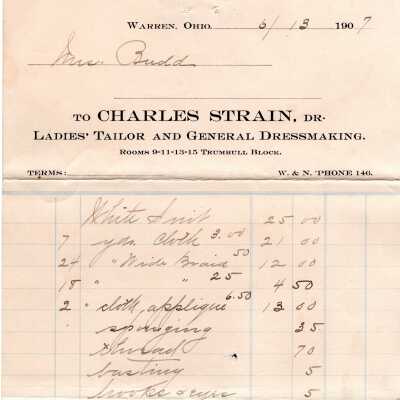 Warren, Ohio. 6/13 1907
Mrs. Budd
TO CHARLES STRAIN, DR.
LADIES' TAILOR AND GENERAL DRESSMAKING.
ROOMS 9-11-13-15 TRUMBULL BLOCK.
TERMS: W. & N. 'PHONE 146.
White Suit 25 00
7 yds. Cloth 3.00 21 00
24 " Wide Braid 50 12 00
18 " " 25 4 50
2 " cloth applique 6.50 13 00
sponging 35
thread 70
basting 5
hooks & eyes 5